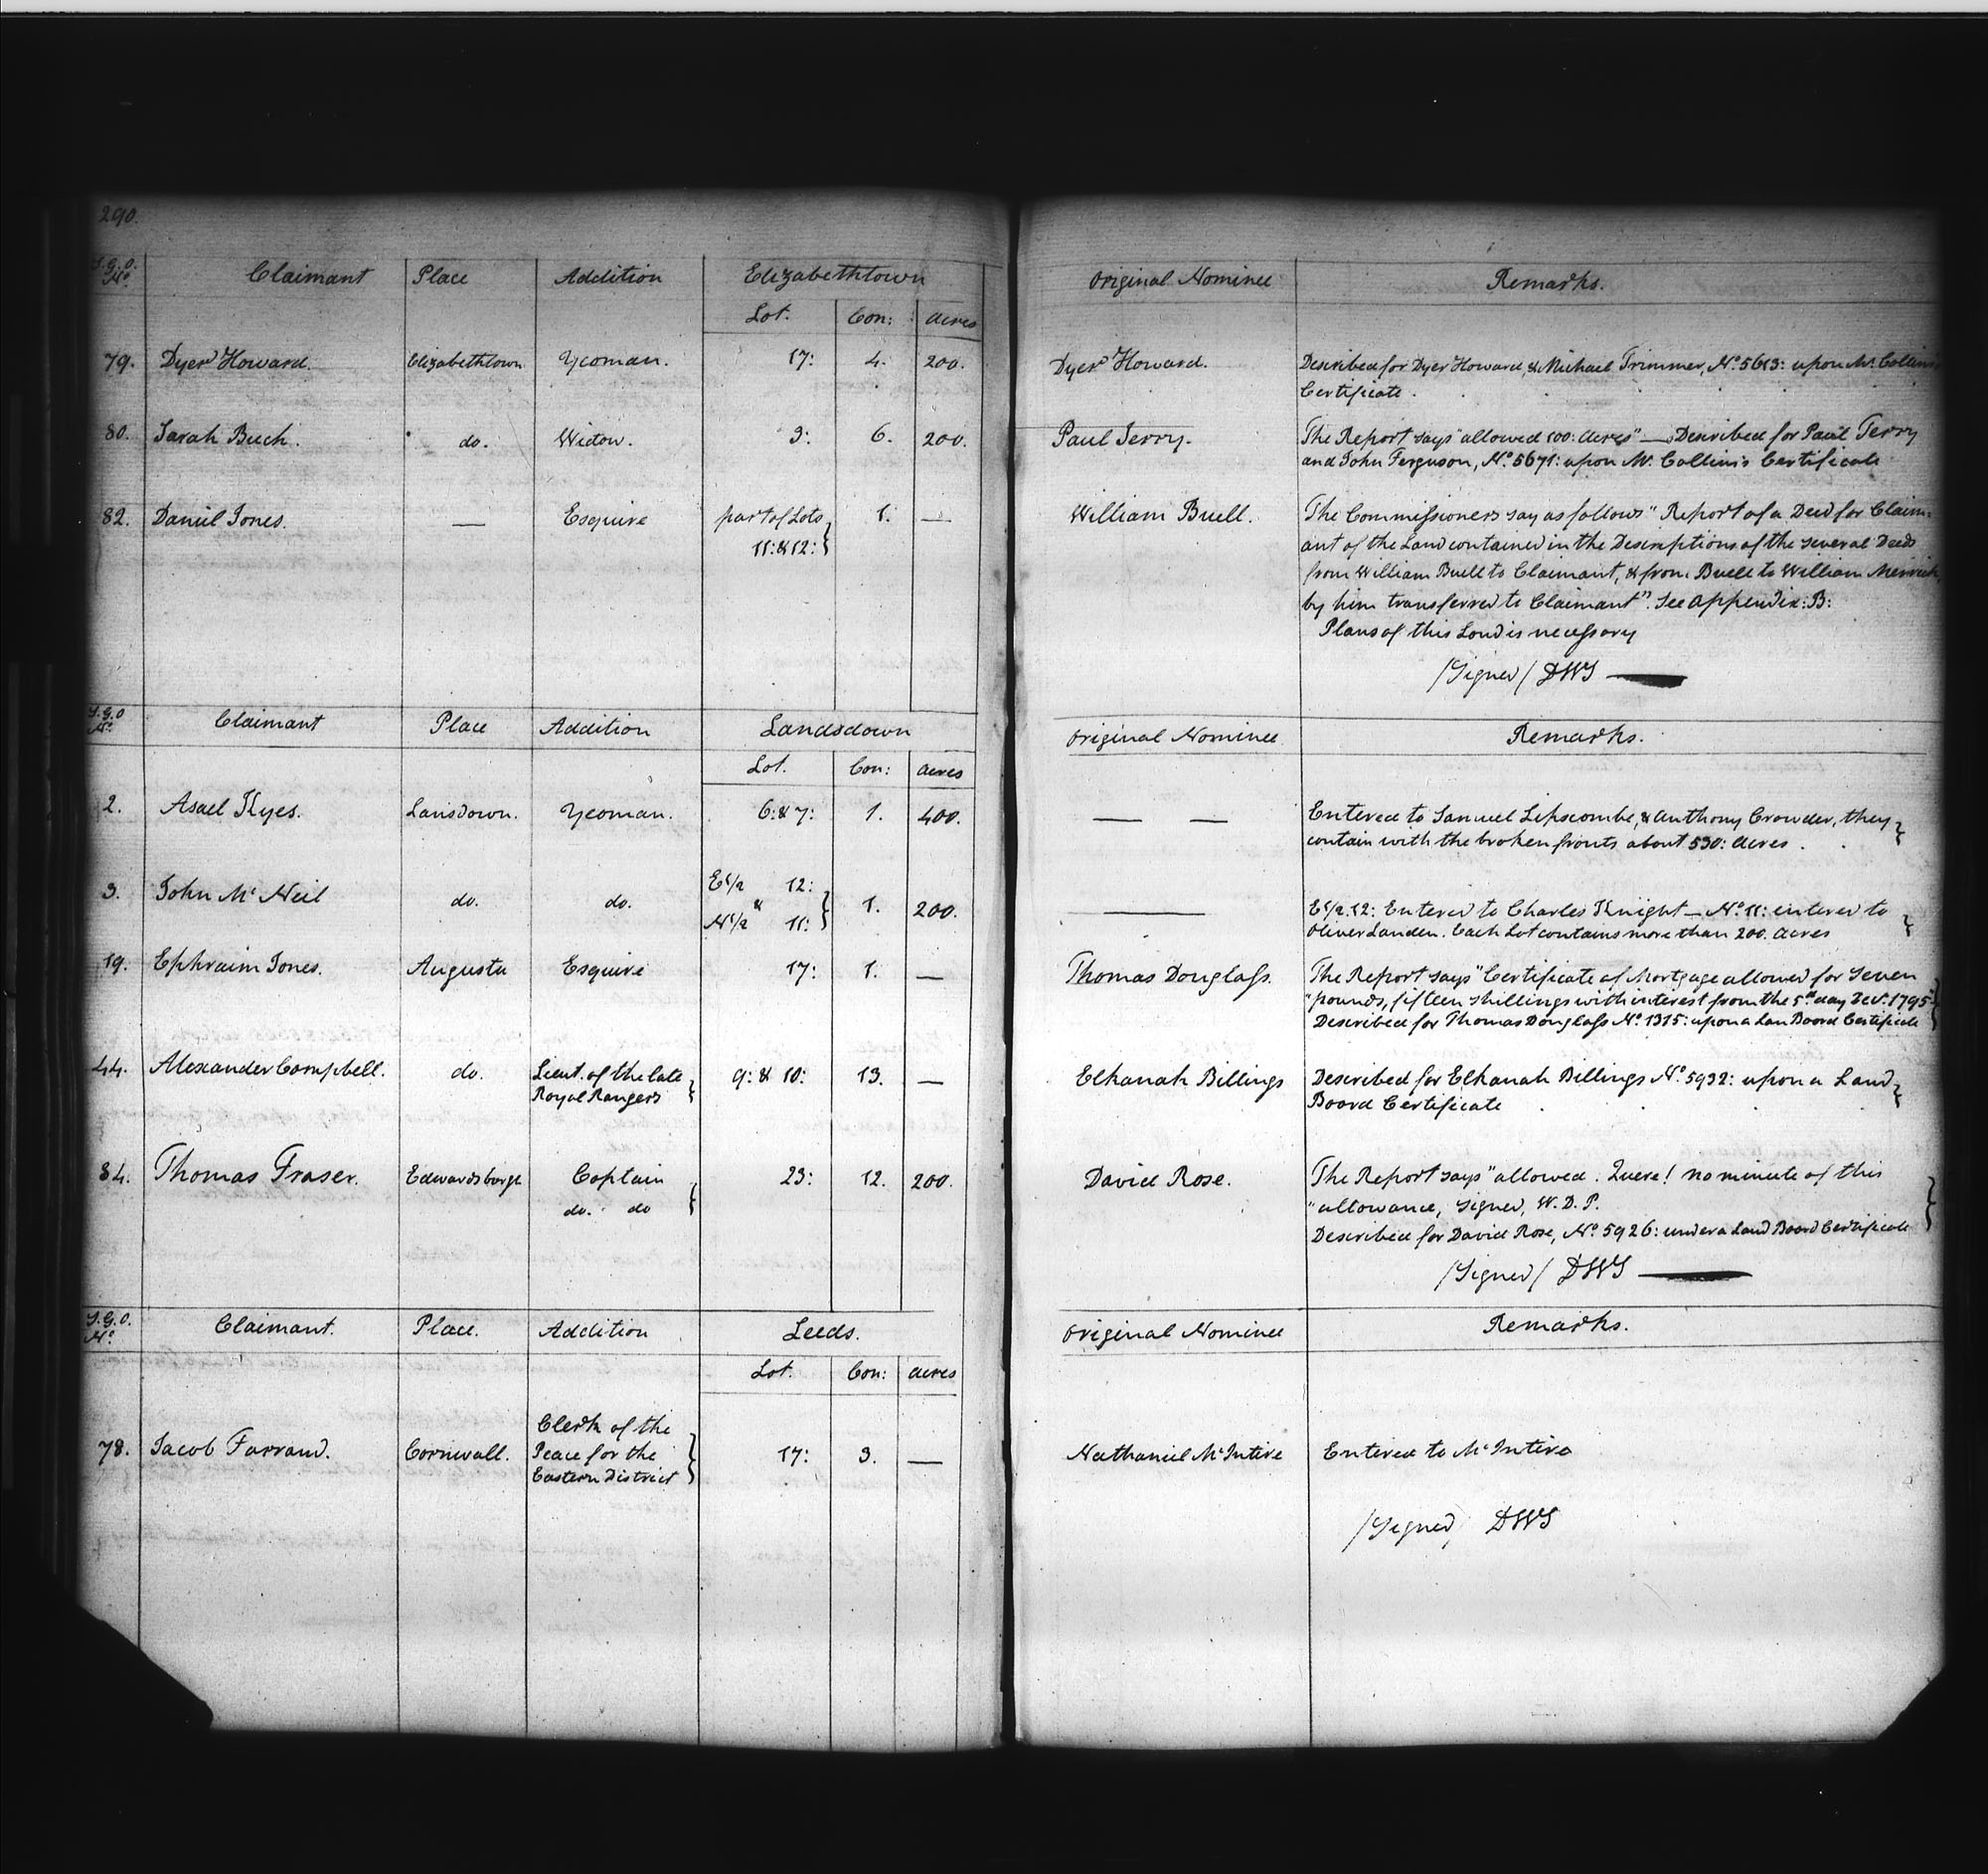 290.
S.G.O. No. Claimant Place Addition Elizabethtown Original Nominee Remarks.
Lot. Con: Acres
79. Dyer Howard. Elizabethtown Yeoman. 17: 4. 200. Dyer Howard. Described for Dyer Howard, & Michael Trimmer, No. 5613: upon Mr. Collins
Certificate.
80. Sarah Buck. do. Widow. 3: 6. 200. Paul Terry. The Report says "allowed 100: Acres" — Described for Paul Terry
and John Ferguson, No. 5671: upon Mr. Collins's Certificate
82. Daniel Jones. — Esquire part of Lots 11: & 12: } 1. — William Buell. The Commissioners say as follows "Report of a Deed for Claim=
ant of the Land contained in the Descriptions of the several Deeds
from William Buell to Claimant, & from Buell to William Merrick,
by him transferred to Claimant". See Appendix: B:
Plans of this Land is necessary
/Signed/ DWS —
S.G.O No. Claimant Place Addition Landsdown Original Nominee Remarks.
Lot. Con: Acres
2. Asael Kyes. Lansdown. Yeoman. 6: & 7: 1. 400. — — Entered to Samuel Lipscombe, & Anthony Crowder, they
contain with the broken fronts about 530: Acres. }
3. John Mc Neil do. do. E 1/2 12: & N 1/2 11: } 1. 200. — E 1/2. 12: Entered to Charles Knight — No. 11: entered to
Oliver Landen. Each Lot contains more than 200. Acres }
19. Ephraim Jones. Augusta Esquire 17: 1. — Thomas Douglass. The Report says "Certificate of Mortgage allowed for Seven
"pounds, fifteen shillings with interest from the 5th day Decr. 1795"
Described for Thomas Douglass No. 1315: upon a Lan Board Certificate }
44. Alexander Campbell. do. Lieut. of the late Royal Rangers } 9: & 10: 13. — Elkanah Billings Described for Elkanah Billings No. 5932: upon a Land
Board Certificate }
84. Thomas Fraser. Edwardsburgh Captain do. do } 23: 12. 200. David Rose. The Report says "allowed. Quere! no minute of this
"allowance, signed, W. D. P.
Described for David Rose, No. 5926: under a Land Board Certificate }
/Signed/ DWS —
S.G.O. No. Claimant. Place. Addition Leeds. Original Nominee Remarks.
Lot. Con: Acres
78. Jacob Farrand. Cornwall. Clerk of the Peace for the Eastern District } 17: 3. — Nathaniel McIntire Entered to McIntire
/Signed/ DWS